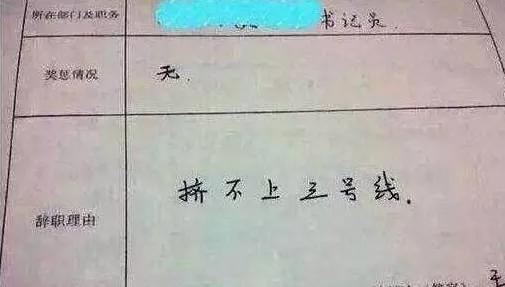 所在部门及职务 书记员.
奖惩情况 无.
辞职理由 挤不上三号线.